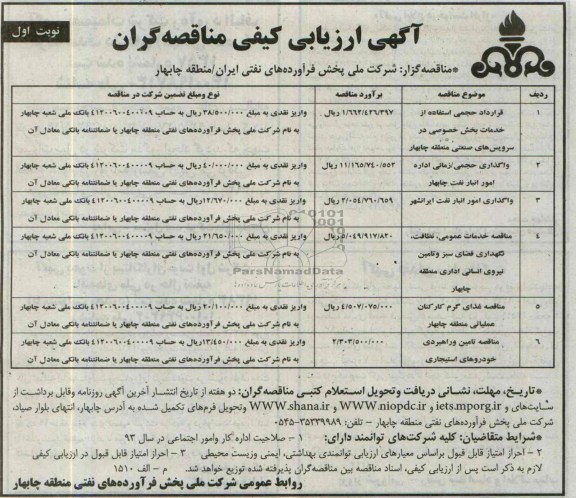 نوبت اول
آگهی ارزیابی کیفی مناقصه‌گران
*مناقصه‌گزار: شرکت ملی پخش فرآورده‌های نفتی ایران/منطقه چابهار
ردیف موضوع مناقصه برآورد مناقصه نوع ومبلغ تضمین شرکت در مناقصه
۱ قرارداد حجمی استفاده از خدمات بخش خصوصی در سرویس‌های صنعتی منطقه چابهار ۱/۶۶۲/۴۲۶/۳۹۷ ریال واریز نقدی به مبلغ ۳۸/۵۰۰/۰۰۰ ریال به حساب ۴۱۲۰۰۶۰۰۴۰۰۰۰۹ بانک ملی شعبه چابهار به نام شرکت ملی پخش فرآورده‌های نفتی منطقه چابهار یا ضمانتنامه بانکی معادل آن
۲ واگذاری حجمی/زمانی اداره امور انبار نفت چابهار ۱۱/۱۶۵/۷۴۰/۵۵۲ ریال واریز نقدی به مبلغ ۴۰/۰۰۰/۰۰۰ ریال به حساب ۴۱۲۰۰۶۰۰۴۰۰۰۰۹ بانک ملی شعبه چابهار به نام شرکت ملی پخش فرآورده‌های نفتی منطقه چابهار یا ضمانتنامه بانکی معادل آن
۳ واگذاری امور انبار نفت ایرانشهر ۲/۰۵۴/۷۶۰/۶۵۹ ریال واریز نقدی به مبلغ ۱۲/۶۷۰/۰۰۰ ریال به حساب ۴۱۲۰۰۶۰۰۴۰۰۰۰۹ بانک ملی شعبه چابهار به نام شرکت ملی پخش فرآورده‌های نفتی منطقه چابهار یا ضمانتنامه بانکی معادل آن
۴ مناقصه خدمات عمومی، نظافت، نگهداری فضای سبز وتامین نیروی انسانی اداری منطقه چابهار ۵/۰۴۹/۹۱۷/۸۲۰ ریال واریز نقدی به مبلغ ۲۱/۶۵۰/۰۰۰ ریال به حساب ۴۱۲۰۰۶۰۰۴۰۰۰۰۹ بانک ملی شعبه چابهار به نام شرکت ملی پخش فرآورده‌های نفتی منطقه چابهار یا ضمانتنامه بانکی معادل آن
ParsNamadData
۵ مناقصه غذای گرم کارکنان عملیاتی منطقه چابهار ۴/۵۰۷/۰۷۵/۰۰۰ ریال واریز نقدی به مبلغ ۲۰/۱۰۰/۰۰۰ ریال به حساب ۴۱۲۰۰۶۰۰۴۰۰۰۰۹ بانک ملی شعبه چابهار به نام شرکت ملی پخش فرآورده‌های نفتی منطقه چابهار یا ضمانتنامه بانکی معادل آن
۶ مناقصه تامین وراهبردی خودروهای استیجاری ۲/۳۰۳/۵۰۰/۰۰۰ واریز نقدی به مبلغ ۱۳/۴۵۰/۰۰۰ ریال به حساب ۴۱۲۰۰۶۰۰۴۰۰۰۰۹ بانک ملی شعبه چابهار به نام شرکت ملی پخش فرآورده‌های نفتی منطقه چابهار یا ضمانتنامه بانکی معادل آن
*تاریخ، مهلت، نشانی دریافت وتحویل استعلام کتبی مناقصه‌گران: دو هفته از تاریخ انتشار آخرین آگهی روزنامه وقابل برداشت از
سایت‌های iets.mporg.ir و WWW.niopdc.ir و WWW.shana.ir وتحویل فرم‌های تکمیل شده به آدرس چابهار، انتهای بلوار صیاد،
شرکت ملی پخش فرآورده‌های نفتی منطقه چابهار – تلفن: ۳۵۳۳۹۹۸۹-۰۵۴۵
*شرایط متقاضیان: کلیه شرکت‌های توانمند دارای: ۱ – صلاحیت اداره کار وامور اجتماعی در سال ۹۳
۲ – احراز امتیاز قابل قبول براساس معیارهای ارزیابی توانمندی بهداشتی، ایمنی وزیست محیطی ۳ – احراز امتیاز قابل قبول در ارزیابی کیفی
لازم به ذکر است پس از ارزیابی کیفی، اسناد مناقصه بین مناقصه‌گران پذیرفته شده توزیع خواهد شد. م – الف ۱۵۱۰
روابط عمومی شرکت ملی پخش فرآورده‌های نفتی منطقه چابهار